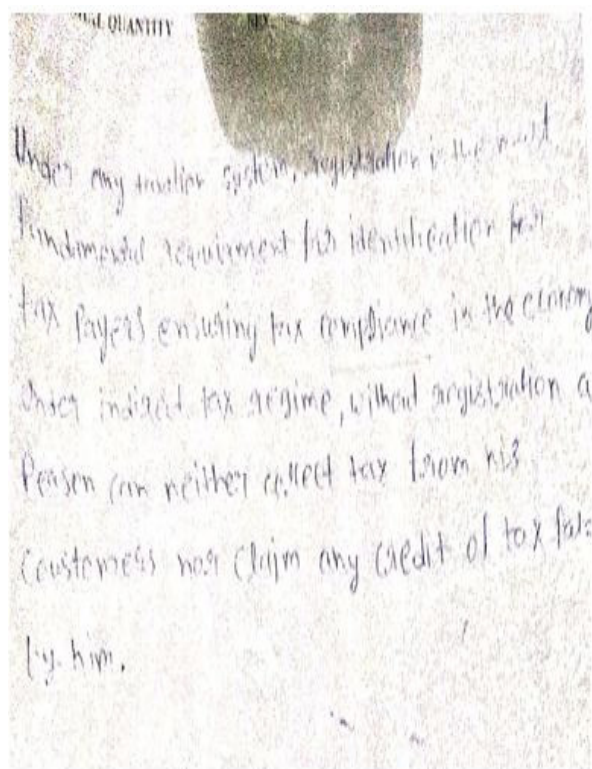 QUANTITY
Under any taxation system, registration is the most
Fundamental requirment for identification for
tax Payers ensuring tax compliance in the economy
Under indirect tax regime, without registration a
Person can neither collect tax from his
Coustomers nor claim any credit of tax
by him.